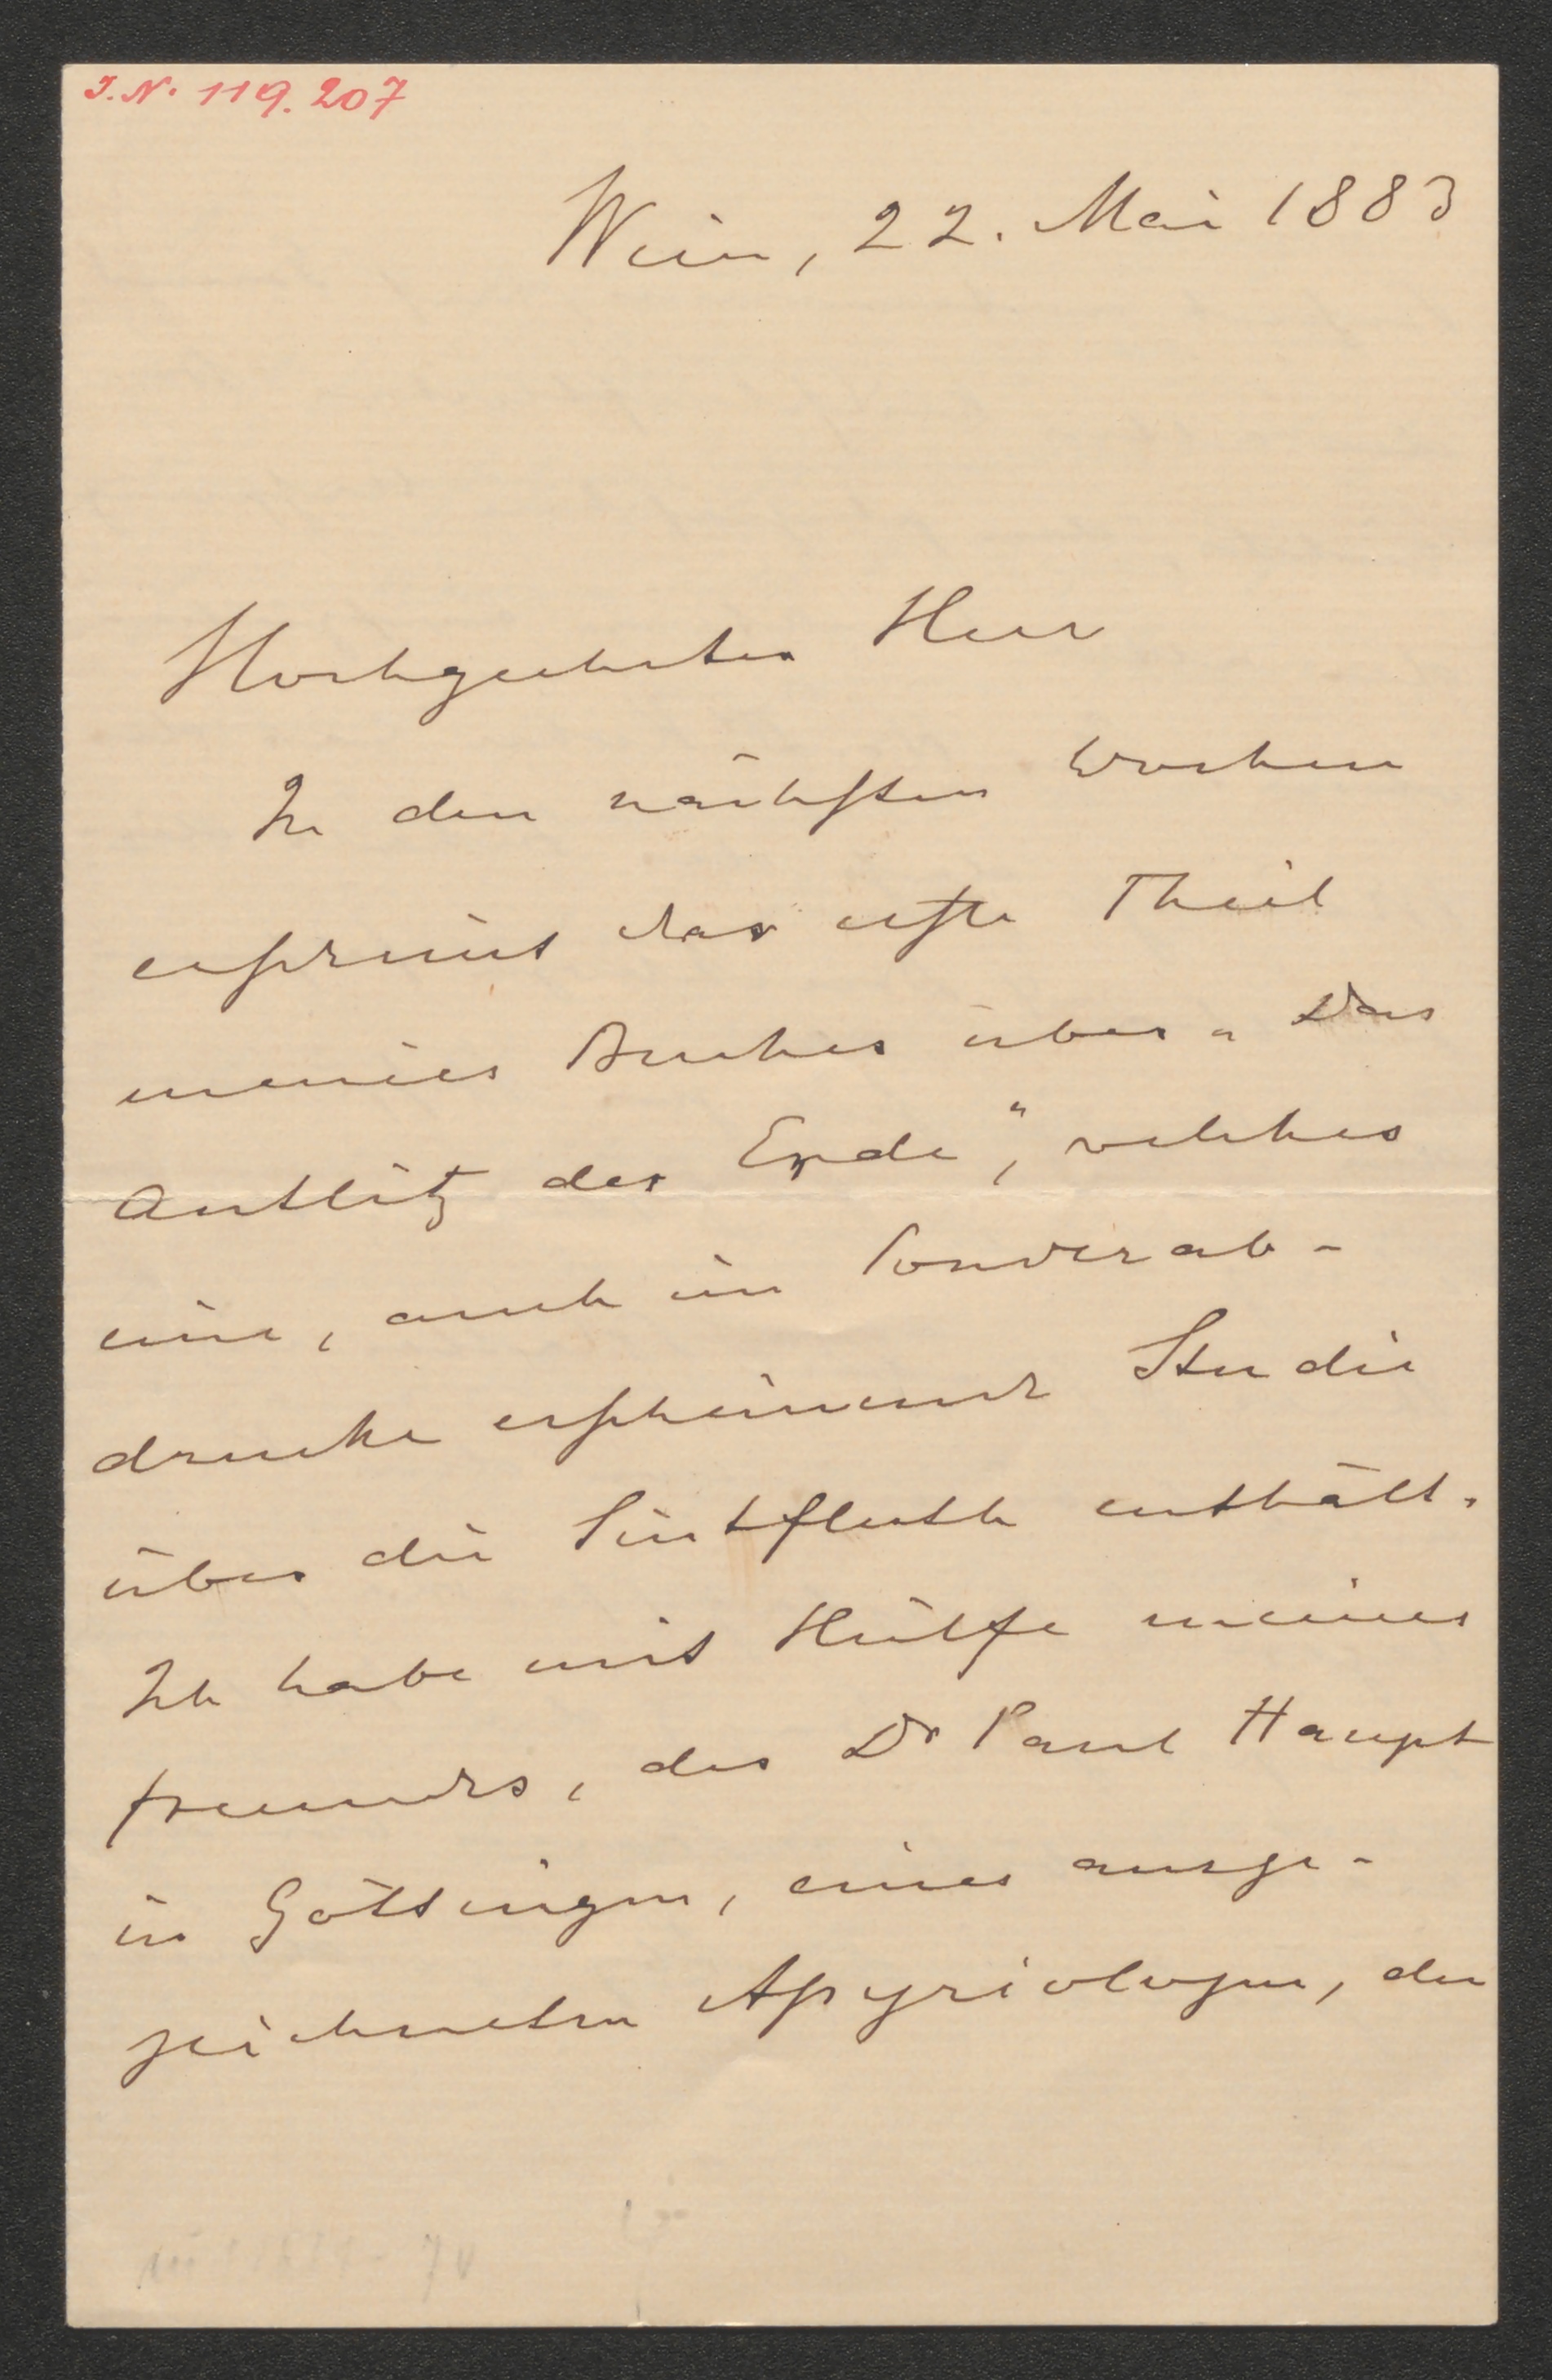 I.N. 119.207
Wien, 22. Mai 1883
Hochgeehrter Herr
In den nächsten Wochen
erscheint der erste Theil
meines Buches über „Das
Antlitz der Erde“, welches
eine, auch im Sonderab-
drucke erscheinende Studie
über die Sintfluth enthält.
Ich habe mit Hülfe meines
Freundes, des Dr Paul Haupt
in Göttingen, eines ausge-
zeichneten Assyriologen, den